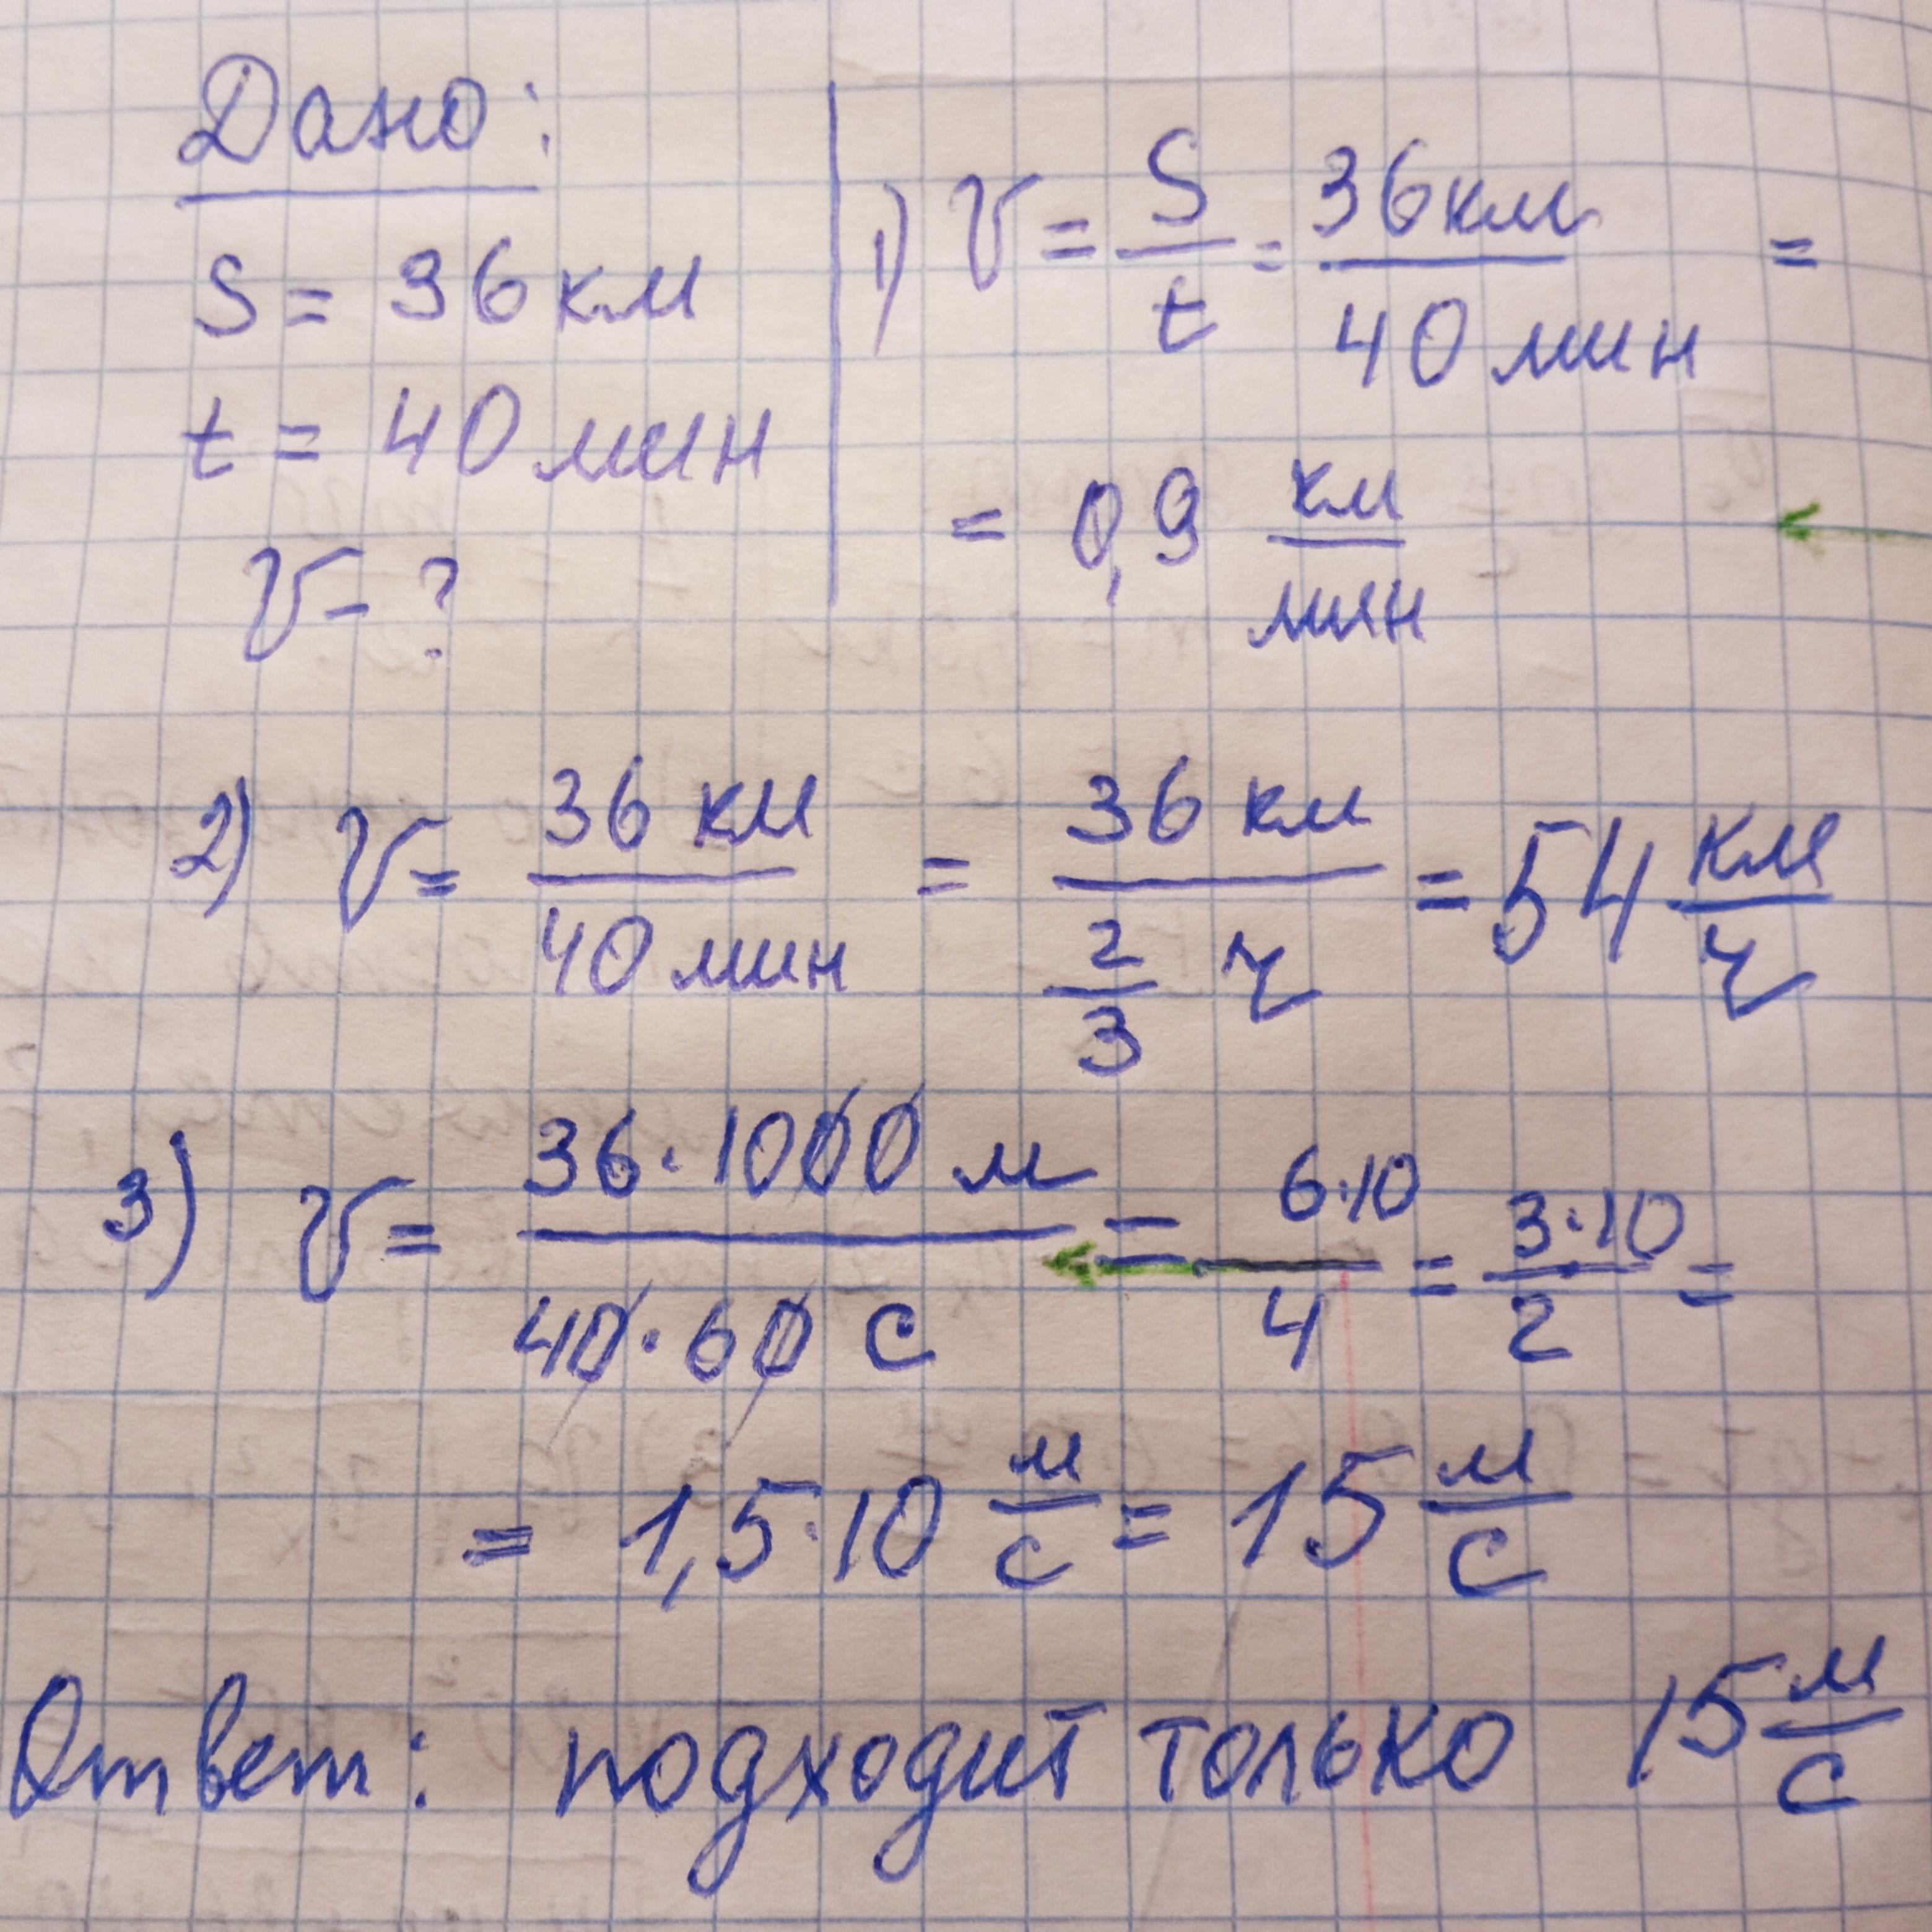 Дано:
S = 36 км
t = 40 мин
V - ?
1) V = S/t = 36 км / 40 мин =
= 0,9 км/мин
2) V = 36 км / 40 мин = 36 км / 2/3 ч = 54 км/ч
3) V = 36·1000 м / 40·60 с = 6·10 / 4 = 3·10 / 2 =
= 1,5·10 м/с = 15 м/с
Ответ: подходит только 15 м/с